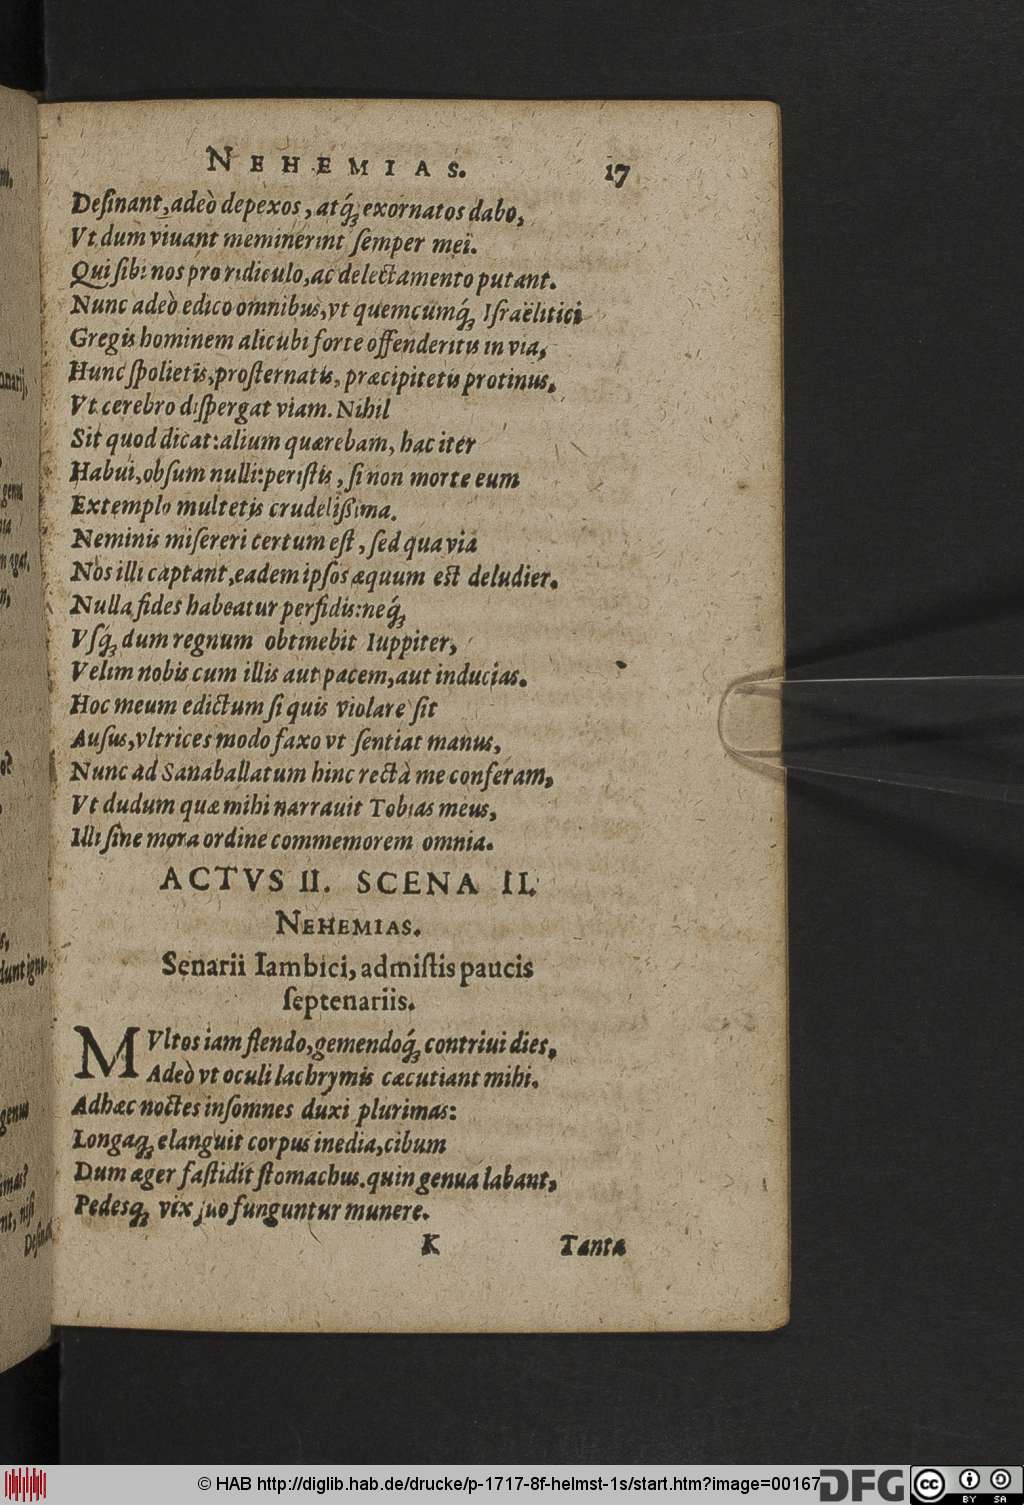 NEHEMIAS. 17
Deſinant, adeò depexos, atq́ꝫ exornatos dabo,
Vt dum viuant meminerint ſemper mei.
Qui ſibi nos pro ridiculo, ac delectamento putant.
Nunc adeò edico omnibus, vt quemcumq́ꝫ Iſraëlitici
Gregis hominem alicubi forte offenderitis in via,
Hunc ſpolietis, proſternatis, præcipitetis protinus,
Vt cerebro diſpergat viam. Nihil
Sit quod dicat: alium quærebam, hac iter
Habui, obſum nulli: periſtis, ſi non morte eum
Extemplo multetis crudelißima.
Neminis miſereri certum eſt, ſed qua via
Nos illi captant, eadem ipſos æquum eſt deludier.
Nulla fides habeatur perfidis: neq́ꝫ
Vſq́ꝫ dum regnum obtinebit Iuppiter,
Velim nobis cum illis aut pacem, aut inducias.
Hoc meum edictum ſi quis violare ſit
Auſus, vltrices modo faxo vt ſentiat manus,
Nunc ad Sanaballatum hinc rectà me conferam,
Vt dudum quæ mihi narrauit Tobias meus,
Illi ſine mora ordine commemorem omnia.
ACTVS II. SCENA II.
NEHEMIAS.
Senarii Iambici, admiſtis paucis
ſeptenariis.
MVltos iam flendo, gemendoq́ꝫ contriui dies,
Adeò vt oculi lachrymis cæcutiant mihi.
Ad hæc noctes inſomnes duxi plurimas:
Longaqꝫ elanguit corpus inedia, cibum
Dum æger faſtidit ſtomachus. quin genua labant,
Pedesqꝫ vix ſuo funguntur munere.
K Tanta
© HAB http://diglib.hab.de/drucke/p-1717-8f-helmst-1s/start.htm?image=00167
DFG
cc BY SA